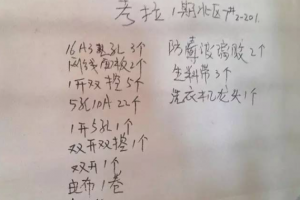 考拉 1期北区 2-201
16A3孔 3个
网线面板2个
1开双控5个
5孔10A 22个
1开5孔1个
双开双控1个
双开1个
电布1卷
防霉玻璃胶2个
生料带3个
洗衣机龙头1个